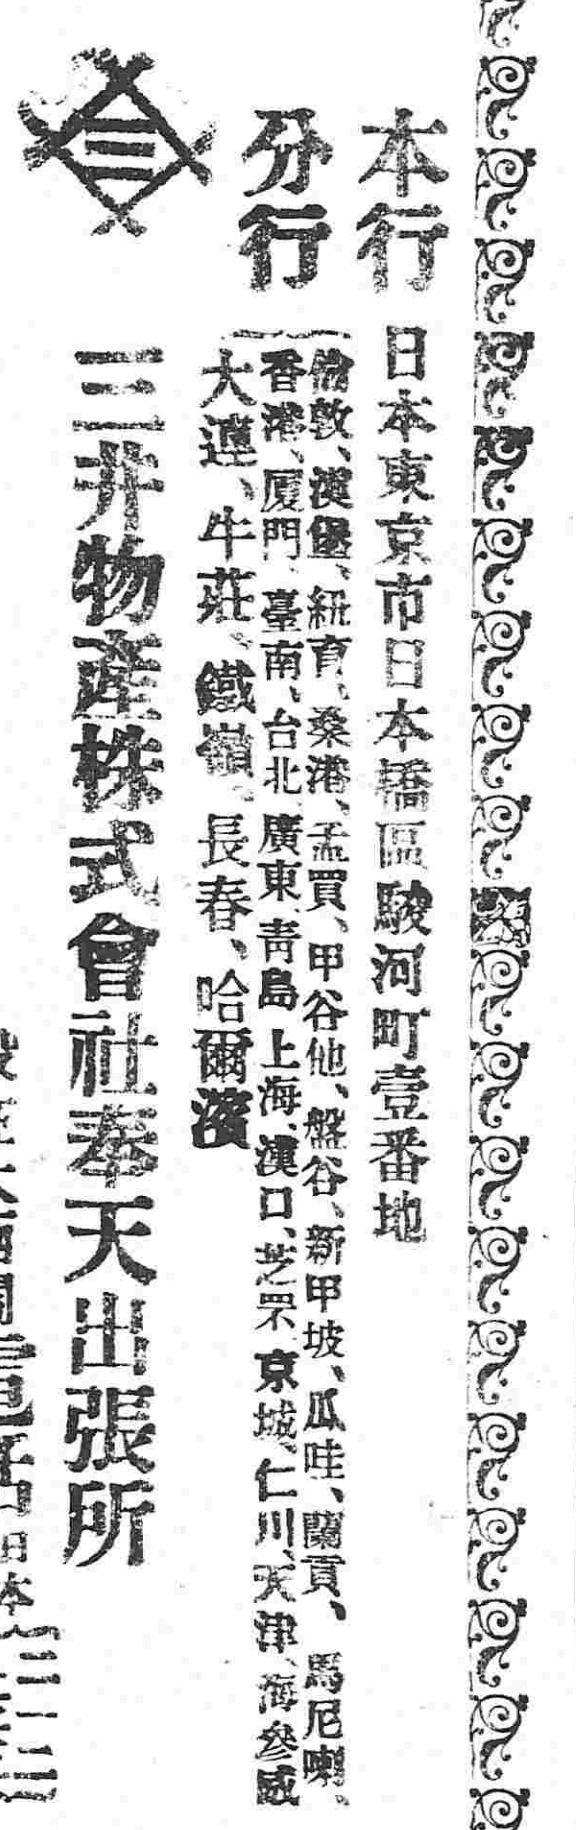 本行 日本東京市日本橋區駿河町壹番地
分行
倫敦、漢堡、紐育、桑港、孟買、甲谷他、盤谷、新甲坡、瓜哇、蘭貢、馬尼喇、
香港、厦門、臺南、台北、廣東、靑島、上海、漢口、芝罘、京城、仁川、天津、海參威
大連、牛莊、鐵嶺、長春、哈爾濱
三井物產株式會社奉天出張所
電話 日本